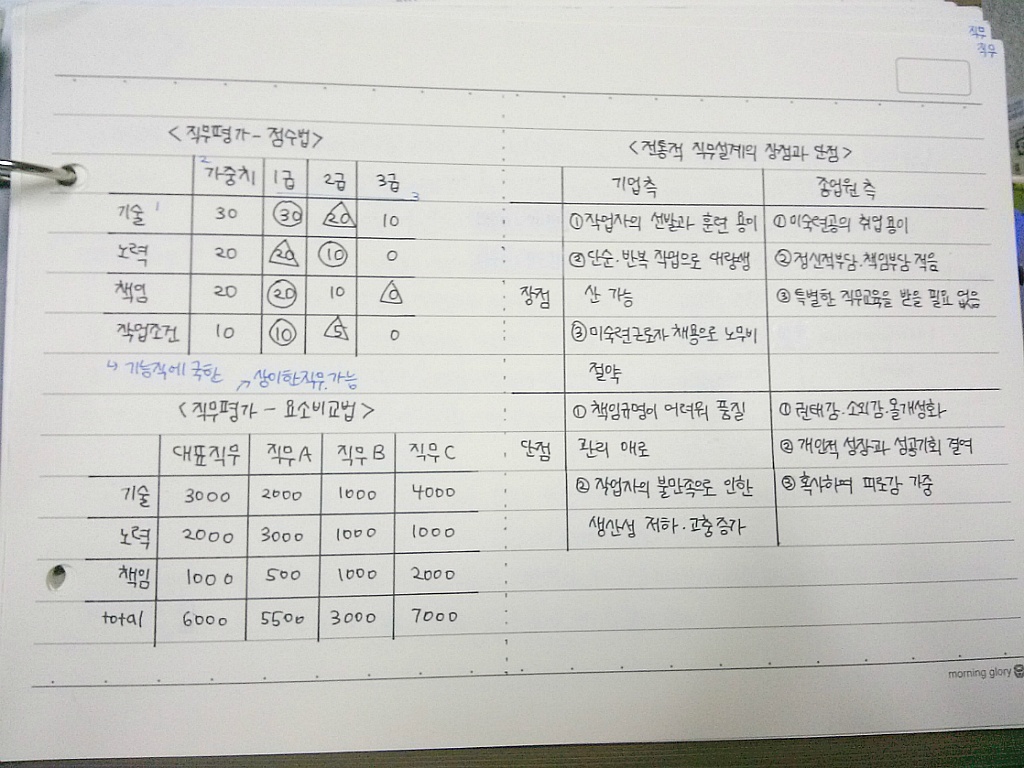 직무
직무
<직무평가 - 점수법>
2 가중치 1급 2급 3급 3
기술 1 30 30 20 10
노력 20 20 10 0
책임 20 20 10 0
작업조건 10 10 5 0
↳ 기능직에 국한 ↗ 상이한직무.가능
<직무평가 - 요소비교법>
대표직무 직무A 직무B 직무C
기술 3000 2000 1000 4000
노력 2000 3000 1000 1000
책임 1000 500 1000 2000
total 6000 5500 3000 7000
<전통적 직무설계의 장점과 단점>
기업측 종업원 측
장점
① 작업자의 선발과 훈련 용이
② 단순·반복 작업으로 대량생
산 가능
③ 미숙련근로자 채용으로 노무비
절약
① 미숙련공의 취업용이
② 정신적부담·책임부담 적음
③ 특별한 직무교육을 받을 필요 없음
단점
① 책임규명이 어려워 품질
관리 애로
② 작업자의 불만족으로 인한
생산성 저하·고충증가
① 권태감·소외감·몰개성화
② 개인적 성장과 성공기회 결여
③ 혹사하여 피로감 가중
morning glory